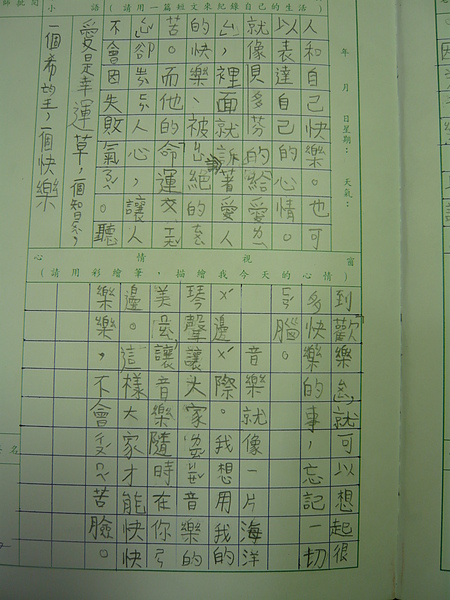 年 月 日 星期： 天氣：
小 語 （請用一篇短文來紀錄自己的生活）
師批閱
人和自己快樂。也可
以表達自己的心情。
就像貝多芬的「給愛
，裡面就訴著愛人
的快樂、被拒絕的
苦。而他的「命運交
卻人心，讓
不會因失敗氣。聽
愛是幸運草，一個知足，
一個希望，一個快樂
心 情 視 窗
（請用彩繪筆，描繪我今天的心情）
到「歡樂，就可以想起很
多快樂的事，忘記一切
腦。
音樂就像一片海洋
ㄨˊ邊ㄨˊ際。我想用我的
琴聲讓大家音樂的
美，讓音樂隨時在你ㄕㄣ
邊。這樣大家才能快快
樂樂，不會苦臉。